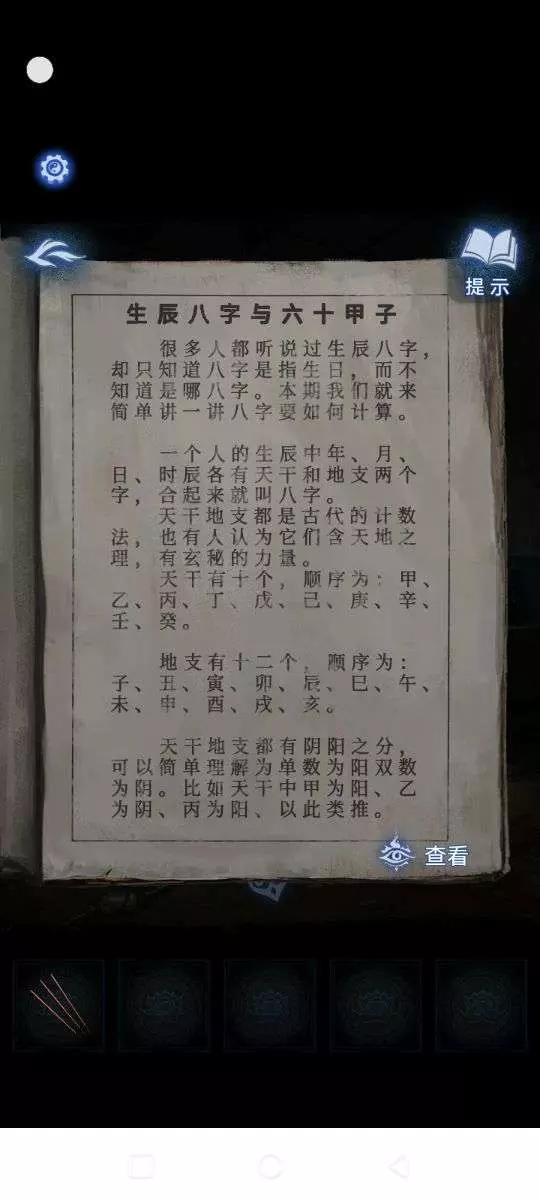 提示
生辰八字与六十甲子
很多人都听说过生辰八字，
却只知道八字是指生日，而不
知道是哪八字。本期我们就来
简单讲一讲八字要如何计算。
一个人的生辰中年、月、
日、时辰各有天干和地支两个
字，合起来就叫八字。
天干地支都是古代的计数
法，也有人认为它们含天地之
理，有玄秘的力量。
天干有十个，顺序为：甲、
乙、丙、丁、戊、己、庚、辛、
壬、癸。
地支有十二个，顺序为：
子、丑、寅、卯、辰、巳、午、
未、申、酉、戌、亥。
天干地支都有阴阳之分，
可以简单理解为单数为阳双数
为阴。比如天干中甲为阳、乙
为阴、丙为阳、以此类推。
查看